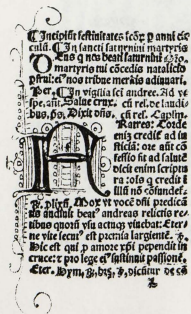 Incipiūt festiuitates scōꝝ p anni cir
culū. In sancti saturnini martyris
Deus q nos beati saturnini
martyris tui cōcedis natalicio
pfrui: ei nos tribue meritis adiuuari.
Per. In vigilia sci andree. Ad ve
spe. añ. Salue crux. cū rel. de laudi
bus. ps. Dixit dñs. cū rel. Capłm.
Fratres. Corde
enim credit᷑ ad iu
sticiā: ore añt cō
fessio fit ad salutē
dicit enim scriptu
ra: oīs q credit ī
illū nō cōfundet᷑.
Mox vt vocē dñi predicā
tis audiuit beat᷒ andreas relictis re
tibus quorū vsu actuq viuebat. Eter
ne vite secut᷒ est premia largiente.
Hic est qui p amore xp̄i pependit in
cruce: et pro lege ei᷒ sustinuit passionē.
Eter. dicitur de